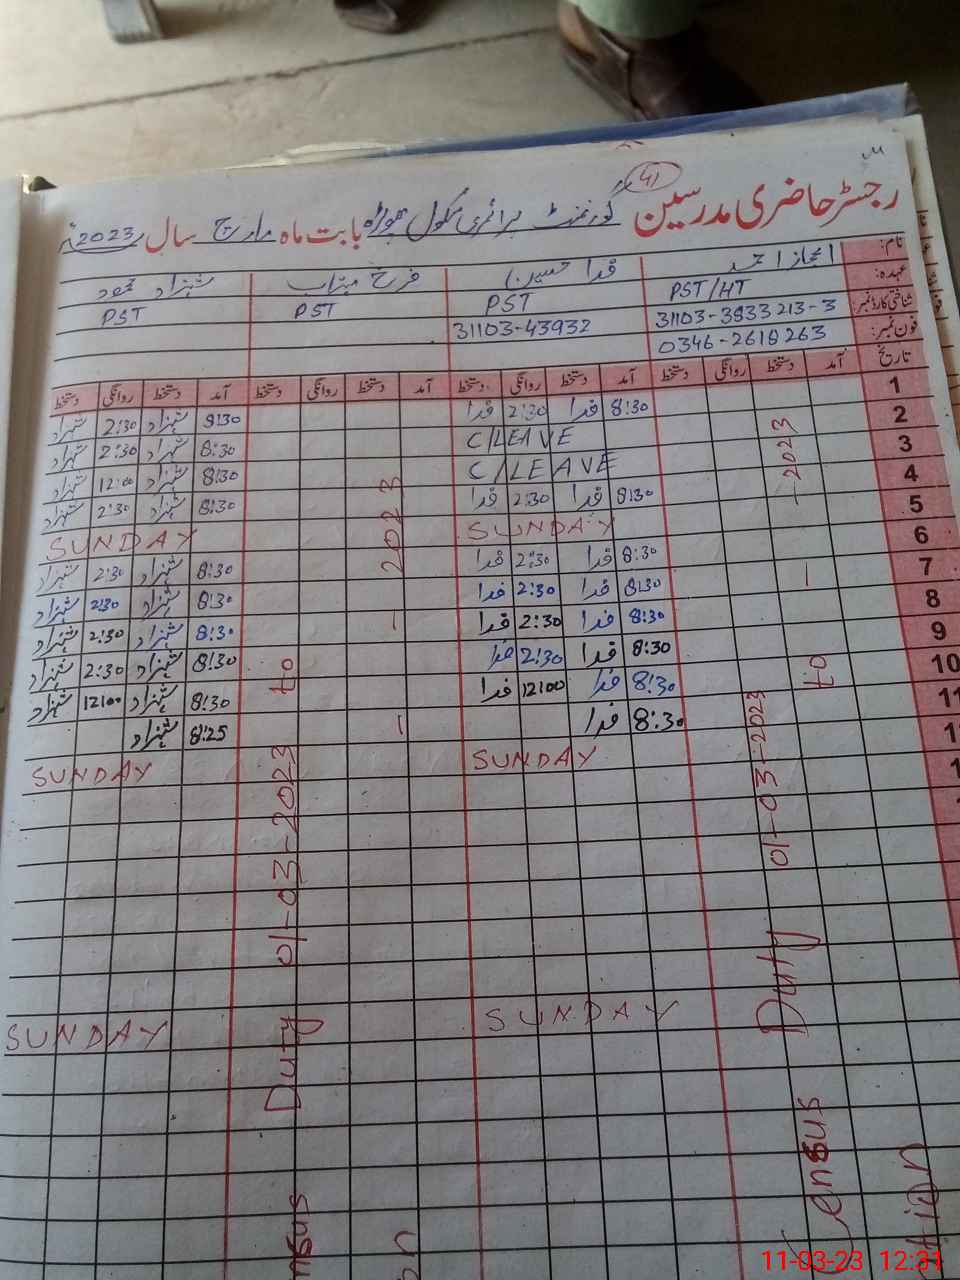 41
رجسٹر حاضری مدرسین گورنمنٹ پرائمری سکول بابت ماہ مارچ سال 2023ء
نام: اعجاز احمد فدا حسین فرح شہزاد محمود
عہدہ: PST/HT PST PST PST
شناختی کارڈ نمبر: 31103-3833213-3 31103-43932
فون نمبر: 0346-2618263
تاریخ آمد دستخط روانگی دستخط آمد دستخط روانگی دستخط آمد دستخط روانگی دستخط آمد دستخط روانگی دستخط
1 8:30 فدا 2:30 فدا 8:30 شہزاد 2:30 شہزاد
2 C/LEAVE 8:30 شہزاد 2:30 شہزاد
3 C/LEAVE 8:30 شہزاد 12:00 شہزاد
4 8:30 فدا 2:30 فدا 8:30 شہزاد 2:30 شہزاد
5 SUNDAY SUNDAY
6 8:30 فدا 2:30 فدا 8:30 شہزاد 2:30 شہزاد
7 8:30 فدا 2:30 فدا 8:30 شہزاد 2:30 شہزاد
8 8:30 فدا 2:30 فدا 8:30 شہزاد 2:30 شہزاد
9 8:30 فدا 2:30 فدا 8:30 شہزاد 2:30 شہزاد
10 8:30 فدا 12:00 فدا 8:30 شہزاد 12:00 شہزاد
11 8:30 فدا 8:25 شہزاد
SUNDAY SUNDAY
SUNDAY SUNDAY
Census Duty 01-03-2023 to
- - 2023
Duty 01-03-2023 to
- - 2023
11-03-23 12:31